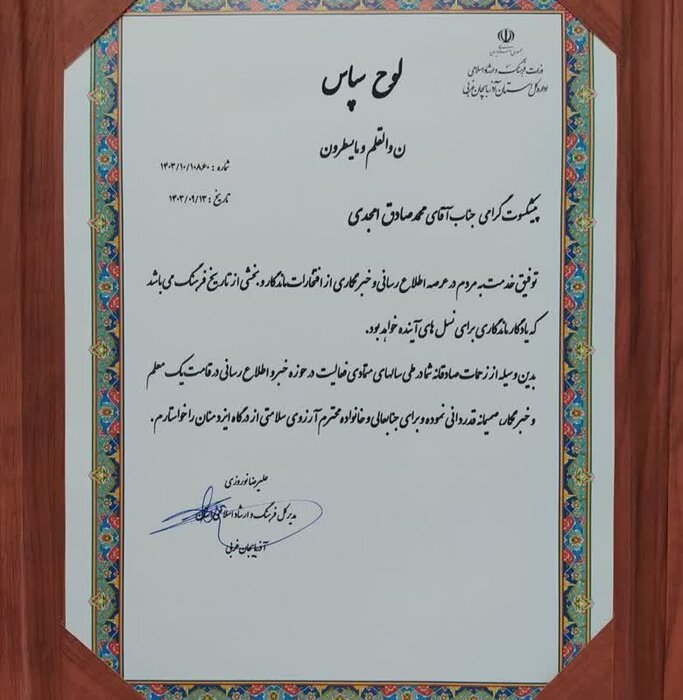 جمهوری اسلامی ایران
وزارت فرهنگ و ارشاد اسلامی
اداره کل استان آذربایجان غربی
لوح سپاس
ن والقلم و مایسطرون
شماره : ۱۴۰۳/۱۰/۱۰۸۶۰
تاریخ : ۱۴۰۳/۰۹/۱۳
پیشکسوت گرامی جناب آقای محمد صادق امجدی
توفیق خدمت به مردم در عرصه اطلاع رسانی و خبرنگاری از افتخارات ماندگار و بخشی از تاریخ فرهنگ می باشد
که یادگار ماندگاری برای نسل های آینده خواهد بود.
بدین وسیله از زحمات صادقانه شما در طی سالهای متمادی فعالیت در حوزه خبر و اطلاع رسانی در قامت یک معلم
و خبرنگار، صمیمانه قدردانی نموده و برای جنابعالی و خانواده محترم آرزوی سلامتی از درگاه ایزد منان را خواستارم .
علیرضا نوروزی
مدیر کل فرهنگ و ارشاد اسلامی استان
آذربایجان غربی